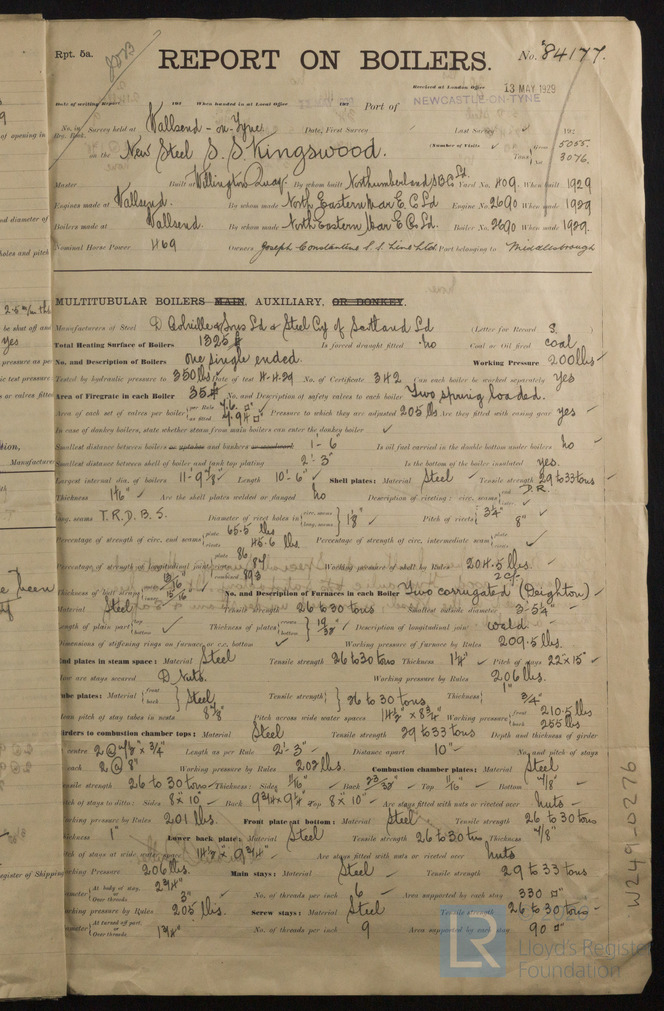 Rpt. 5a.
REPORT ON BOILERS.
No. 84177.
Received at London Office 13 MAY 1929
Date of writing Report 192 When handed in at Local Office 192 Port of NEWCASTLE-ON-TYNE
No. in Reg. Book. Survey held at Wallsend-on-Tyne. Date, First Survey Last Survey 192
on the New Steel S.S. Kingswood. (Number of Visits Tons Gross 5055. Net 3076.
Master Built at Willington Quay. By whom built Northumberland S.B. Co Ld. Yard No. 409. When built 1929
Engines made at Wallsend. By whom made North Eastern Mar E Co Ld Engine No. 2690 When made 1929
Boilers made at Wallsend. By whom made North Eastern Mar E Co Ld. Boiler No. 2690 When made 1929.
Nominal Horse Power 469 Owners Joseph Constantine S.S. Line Ltd Port belonging to Middlesbrough
MULTITUBULAR BOILERS MAIN, AUXILIARY, OR DONKEY.
Manufacturers of Steel D Colville & Sons Ld & Steel Coy of Scotland Ld (Letter for Record S.)
Total Heating Surface of Boilers 1325 Is forced draught fitted no Coal or Oil fired coal
No. and Description of Boilers one single ended. Working Pressure 200 lbs
Tested by hydraulic pressure to 350 lbs Date of test 4-4-29 No. of Certificate 342 Can each boiler be worked separately yes
Area of Firegrate in each Boiler 35 No. and Description of safety valves to each boiler Two spring loaded.
Area of each set of valves per boiler per Rule 4.6 as fitted 4.94 Pressure to which they are adjusted 205 lbs Are they fitted with easing gear yes
In case of donkey boilers, state whether steam from main boilers can enter the donkey boiler
Smallest distance between boilers or uptakes and bunkers or woodwork 1'-6" Is oil fuel carried in the double bottom under boilers no
Smallest distance between shell of boiler and tank top plating 2'-3" Is the bottom of the boiler insulated yes.
Largest internal dia. of boilers 11-9 7/8" Length 10'-6" Shell plates: Material Steel Tensile strength 29 to 33 tons
Thickness Are the shell plates welded or flanged no Description of riveting: circ. seams D.R.
long. seams T.R.D.B.S. Diameter of rivet holes in circ. seams long. seams 1 1/8" Pitch of rivets 3 1/4" 8"
Percentage of strength of circ. end seams plate 65.5 rivets 45.6 Percentage of strength of circ. intermediate seam
Percentage of strength of longitudinal joint plate 86 rivets 87 combined 89.3 Working pressure of shell by Rules 204.5 lbs.
Thickness of butt straps No. and Description of Furnaces in each Boiler Two corrugated (Deighton)
Material Steel Tensile strength 26 to 30 tons Smallest outside diameter 3-5 1/4"
Length of plain part top bottom Thickness of plates crown bottom 19/32" Description of longitudinal joint weld
Dimensions of stiffening rings on furnace or c.c. bottom Working pressure of furnace by Rules 209.5 lbs.
End plates in steam space: Material Steel Tensile strength 26 to 30 tons Thickness 1 1/4" Pitch of stays 22 x 15"
How are stays secured D. Nuts. Working pressure by Rules 206 lbs.
Tube plates: Material front back Steel Tensile strength 26 to 30 tons Thickness 1" 3/4"
Mean pitch of stay tubes in nests 8 7/8" Pitch across wide water spaces 14 1/2" x 8 3/4" Working pressure front 210.5 lbs back 255 lbs
Girders to combustion chamber tops: Material Steel Tensile strength 29 to 33 tons Depth and thickness of girder
centre Length as per Rule 2'-3" Distance apart 10" No. and pitch of stays
each 2 @ 8" Working pressure by Rules 202 lbs. Combustion chamber plates: Material Steel
Tensile strength 26 to 30 tons Thickness: Sides 11/16" Back 23/32" Top 11/16" Bottom 7/8"
Pitch of stays to ditto: Sides 8 x 10" Back 9 3/4 x 9 1/4" Top 8 x 10" Are stays fitted with nuts or riveted over nuts
Working pressure by Rules 201 lbs. Front plate at bottom: Material Steel Tensile strength 26 to 30 tons
Thickness 1" Lower back plate: Material Steel Tensile strength 26 to 30 tons Thickness 7/8"
Pitch of stays at wide water space 14 1/2 x 9 3/4" Are stays fitted with nuts or riveted over nuts
Working Pressure 206 lbs. Main stays: Material Steel Tensile strength 29 to 33 tons
Diameter At body of stay, 2 3/4" Over threads 3" No. of threads per inch 6 Area supported by each stay 330
Working pressure by Rules 205 lbs. Screw stays: Material Steel Tensile strength 26 to 30 tons
Diameter At turned off part, Over threads 1 3/4" No. of threads per inch 9 Area supported by each stay 90
W249-0276
LR
Lloyd's Register
Foundation